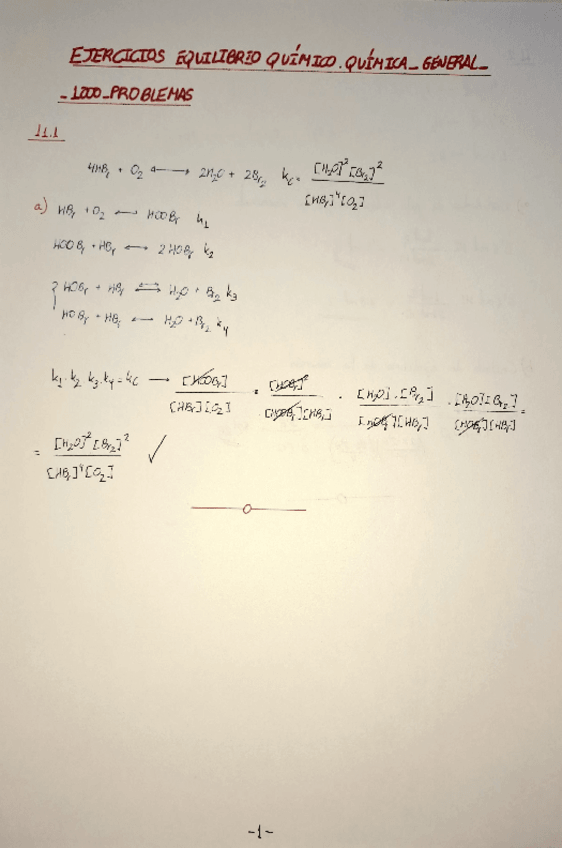 EJERCICIOS EQUILIBRIO QUÍMICO. QUÍMICA_GENERAL_
_1000_PROBLEMAS
11.1
4HBr + O2 ⟷ 2H2O + 2Br2 kc = [H2O]^2 [Br2]^2 / [HBr]^4 [O2]
a) HBr + O2 ⟷ HOOBr k1
HOOBr + HBr ⟷ 2HOBr k2
HOBr + HBr ⟷ H2O + Br2 k3
HOBr + HBr ⟷ H2O + Br2 k4
k1 · k2 · k3 · k4 = kc ⟶ [HOOBr] / [HBr][O2] · [HOBr]^2 / [HOOBr][HBr] · [H2O] · [Br2] / [HOBr][HBr] · [H2O][Br2] / [HOBr][HBr] =
= [H2O]^2 [Br2]^2 / [HBr]^4 [O2] ✓
-1-